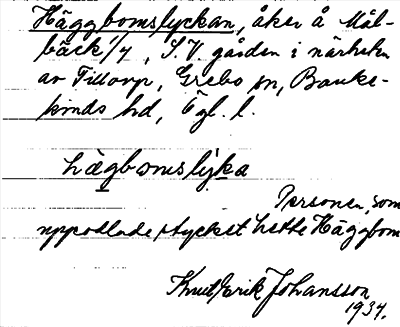 Häggbomslyckan, åker å Mål-
bäck 1/4, S.V. gården i närheten
av Tillorp, Grebo sn, Banke-
kinds hd, Ögl. l.
hägbomslyka
Personen, som
uppodlade stycket hette Häggbom
Knut Erik Johansson
1934.